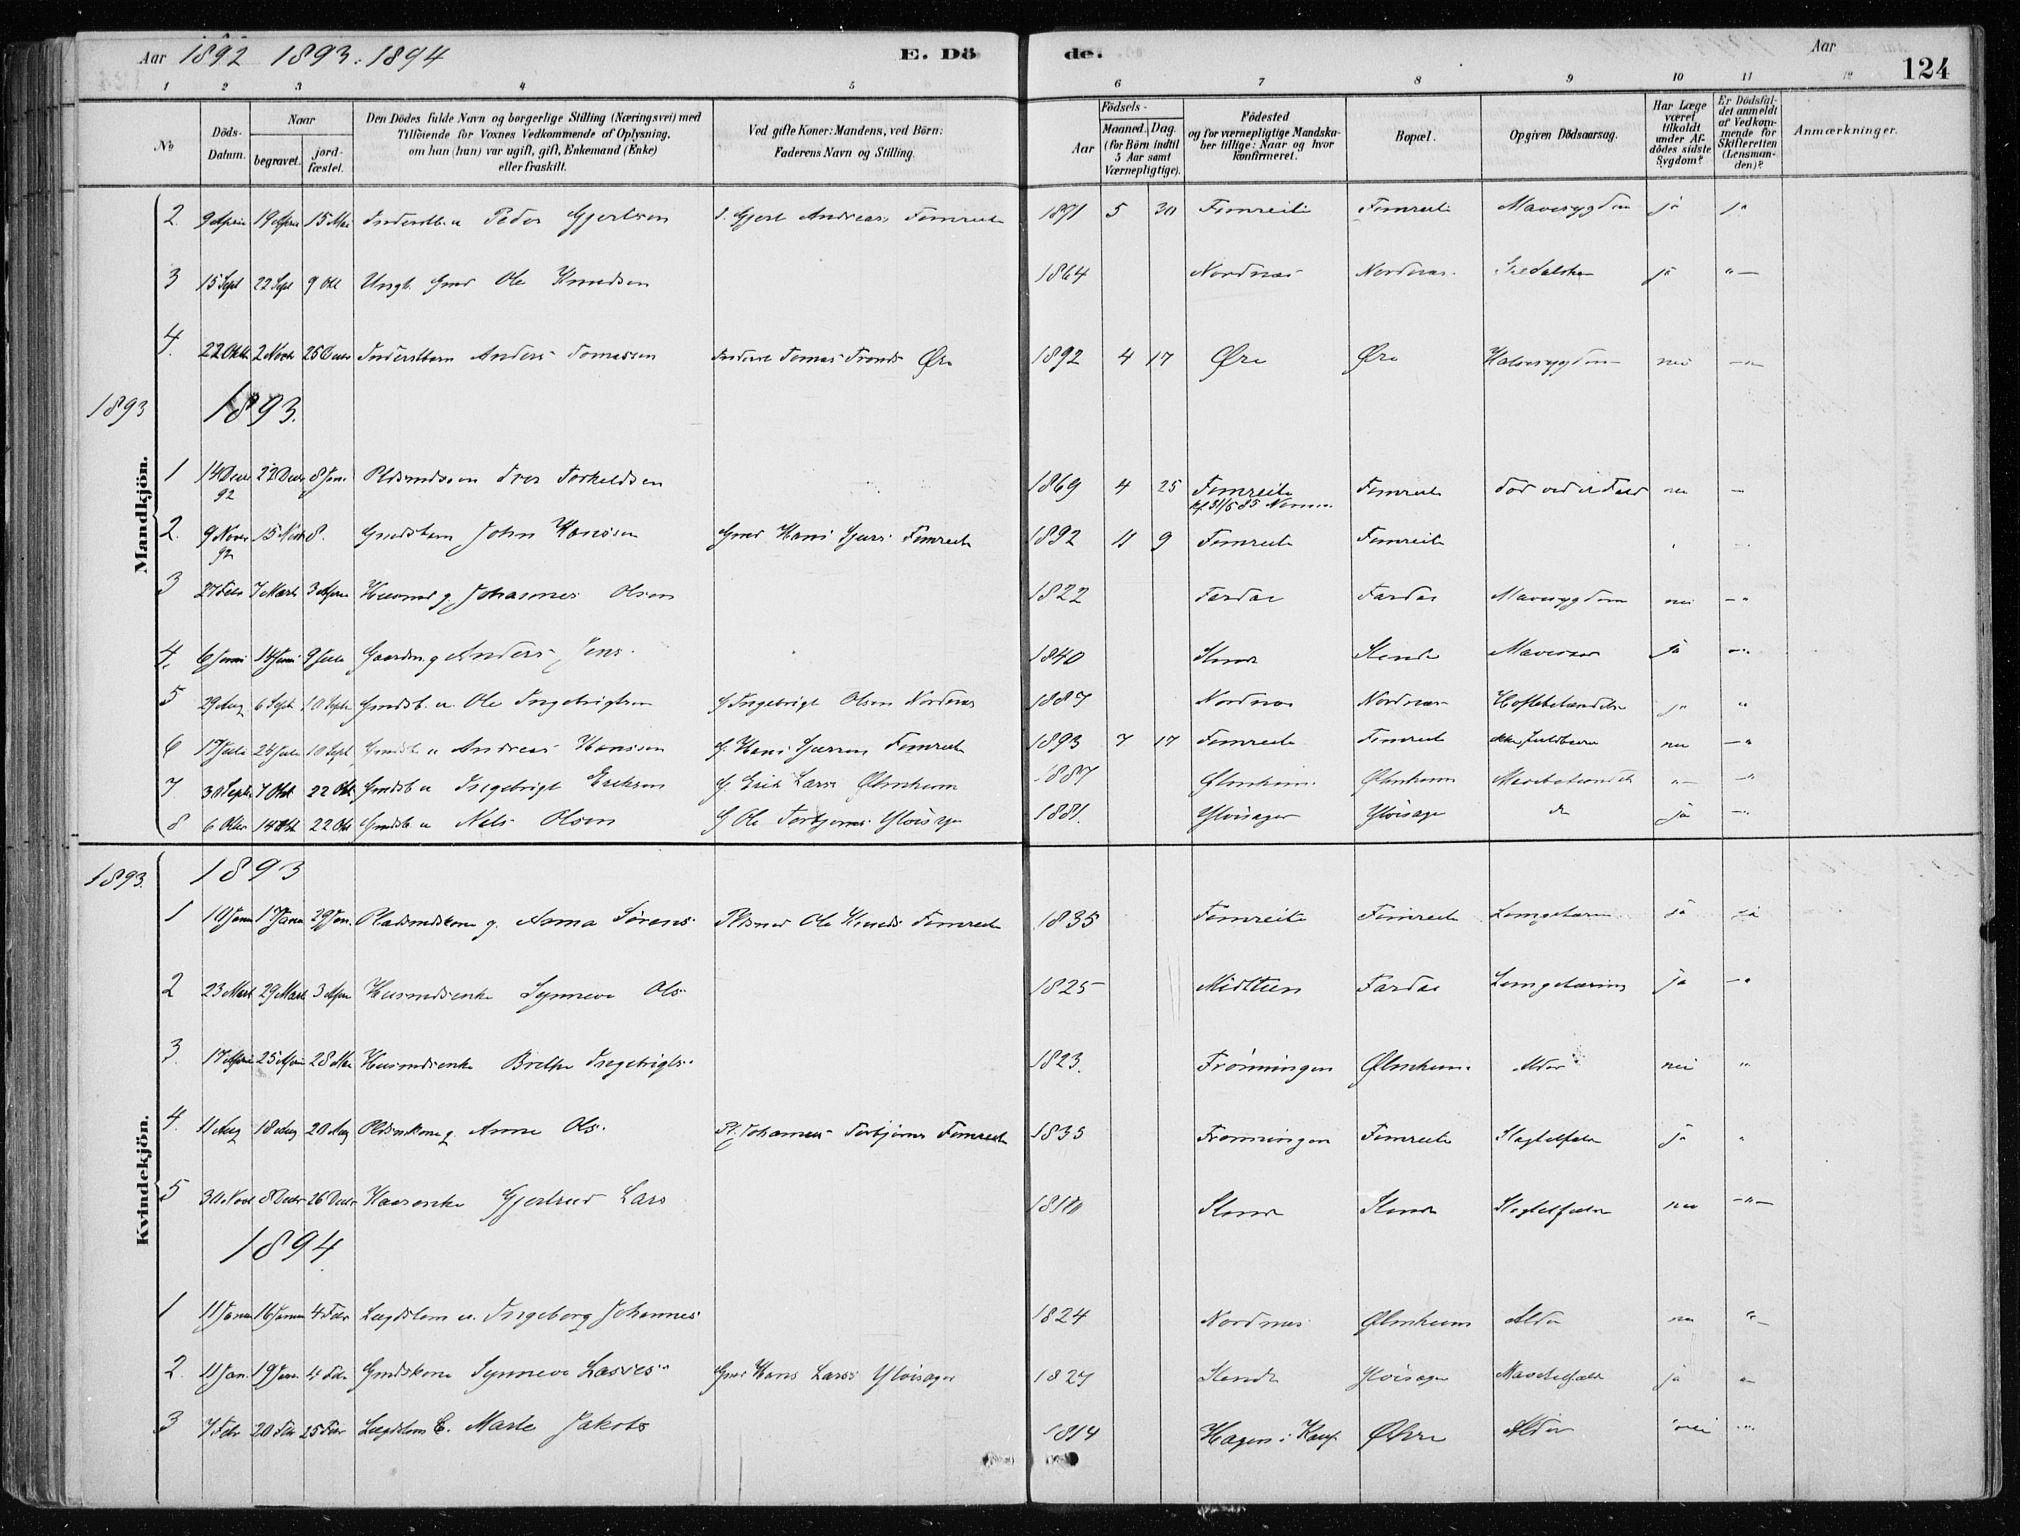 Aar 1892 1893. 1894 E. Dö de. Aar 124
1 2 3 4 5 6 7 8 9 10 11 12
No Döds-Datum. Naar begravet. jord-fæstet. Den Dödes fulde Navn og borgerlige Stilling (Næringsvei) med Tilföiende for Voxnes Vedkommende af Oplysning, om han (hun) var ugift, gift, Enkemand (Enke) eller fraskilt. Ved gifte Koner: Mandens, ved Börn: Faderens Navn og Stilling. Födsels- Aar Maaned. Dag. (for Börn indtil 5 Aar samt Værnepligtige). Födested og for værnepligtige Mandskaber tillige: Naar og hvor konfirmeret. Bopæl. Opgiven Dödsaarsag. Har Læge været tilkaldt under Afdödes sidste Sygdom? Er Dödsfaldet anmeldt af Vedkommende for Skifteretten (Lensmanden)? Anmærkninger.
Mandkjön.
2. 9 April 19 April 15 Mai Inderstb. u Peder Gjertsen I. Gjert Andreas Fimreite 1891 5 30 Fimreite Fimreite Mavesygdom ja ja
3 15 Sept 22 Sept 9 Okt Ungk. Gmd Ole Knudsen 1864 Nordnæs Nordnæs ja "
4. 22 Okt 2 Novb 25 Decbr Inderstbarn Anders Tomassen Inderst Tomas Tronds Øre 1892 4 17 Øre Øre Halssygdom nei "
1893 1893.
1 14 Decbr 92 22 Decbr 8 Jan. Pldsmdssøn Iver Torkeldsen 1869 4 25 Fimreite kf. 31/5 85 Norum Fimreite Død ved et Fald nei
2. 9 Novbr 92 15 Novb 8. Gmdsbarn John Hansen Gmd Hans Sjurs Fimreite 1892 11 9 Fimreite Fimreite
3 27 Febr 7 Marts 3 April Husmd g. Johannes Olsen 1822 Fardal Fardal Mavesygdom nei "
4. 6 Juni 14 Juni 9 Juli Gaardm g Anders Jens. 1840 Stende Stende Mavesaar ja "
5 29 Aug 6 Sept 10 Sept Gmdsb. u. Ole Ingebrigtsen G Ingebrigt Olsen Nordnæs 1887 Nordnæs Nordnæs Hoftebetændelse ja "
6 17 Juli 24 Juli 10 Sept Gmdsb u Andreas Hansen G. Hans Sjursen Fimreite 1893 7 17 Fimreite Fimreite ikke fuldbaaren nei "
7. 30 Sept 7 Okt 22 Okt Gmdsb u Ingebrigt Eriksen G. Erik Lars Ølmheim 1887 Ølmheim Ølmheim "
8 6 Okt 14 Okt 22 Okt Gmdsb u Nils Olsen G Ole Torbjørns Ylvisager 1881. Ylvisager Ylvisager do ja "
Kvindekjön.
1893. 1893
1 10 Januar 17 Januar 29 Jan. Pladsmdskone g. Anna Sørens. Pldsmd Ole Knuds Fimreite 1835 Fimreite Fimreite ja ja
2 23 Marts 29 Marts 3 April Husmdsenke Synneve Ols. 1825 Midttun Fardal ja "
3. 17 April 25 April 28 Mai Husmdsenke Brithe Ingebrigts. 1823. Frønningen Ølmheim Alder nei "
4. 11 Aug 18 Aug 20 Aug Pldsmkone g. Anne Ols. Pl. Johannes Torbjørns Fimreite 1835 Frønningen Fimreite Slagtilfælde ja "
5 30 Novb 8 Decbr 26 Decbr Gjertrud Lars Stende Stende Slagtilfælde nei "
1894.
1 11 Januar 16 Januar 4 Febr Lægdslem u. Ingeborg Johannes 1824 Nordnæs Ølmheim Alder nei "
2. 11 Jan. 19 Jan. 4 Feb Gmdskone Synneve Lasses Gmd Hans Lars Ylvisager 1827 Stende Ylvisager Mavetilfælde ja "
3 7 Febr 20 Febr 25 Febr Lægdslem E. Marte Jakobs 1814 Hagen i Kaup. Alder nei "